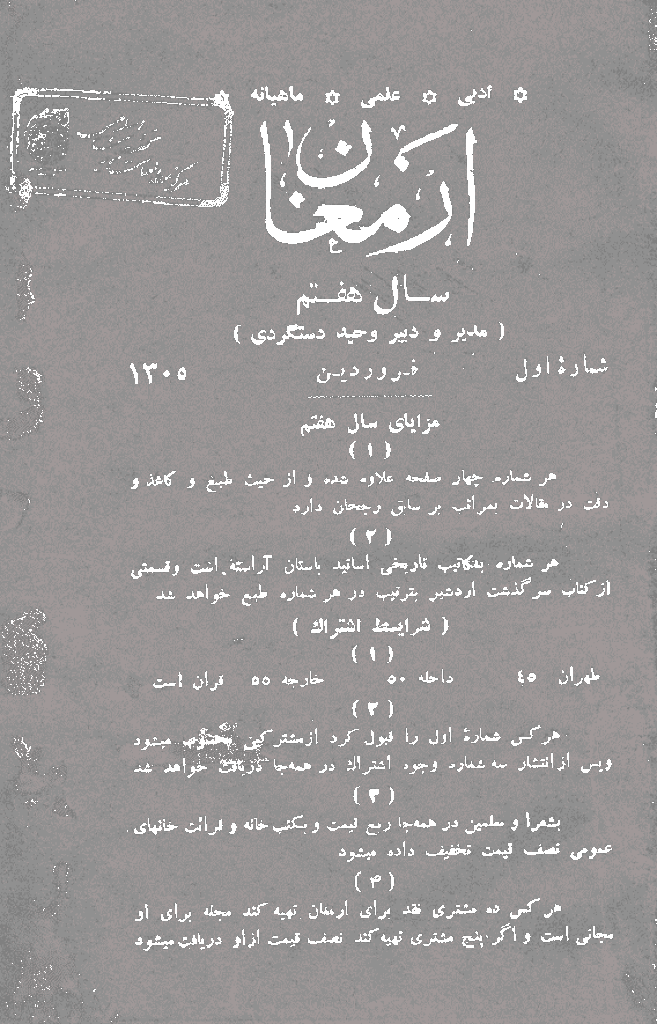 ادبی علمی ماهیانه
ارمغان
سال هفتم
( مدیر و دبیر وحید دستگردی )
شمارهٔ اول فروردین ۱۳۰۵
مزایای سال هفتم
( ۱ )
هر شماره چهار صفحه علاوه شده و از حیث طبع و کاغذ و
دقت در مقالات بمراتب بر سابق رجحان دارد
( ۲ )
هر شماره بمکاتیب تاریخی اساتید باستان آراسته است وقسمتی
از کتاب سر گذشت اردشیر بترتیب در هر شماره طبع خواهد شد
( شرایط اشتراك )
( ۱ )
طهران ٤٥ داخله ٥٠ خارجه ٥٥ قران است
( ۲ )
هر کس شمارهٔ اول را قبول کرد از مشترکین محسوب میشود
وپس از انتشار سه شماره وجوه اشتراك در همه‌جا دریافت خواهد شد
( ۳ )
بشعرا و معلمین در همه‌جا ربع قیمت و بکتب خانه و قرائت خانهای
عمومی نصف قیمت تخفیف داده میشود
( ۴ )
هر کس ده مشتری نقد برای ارمغان تهیه کند مجله برای او
مجانی است و اگر پنج مشتری تهیه کند نصف قیمت از او دریافت میشود